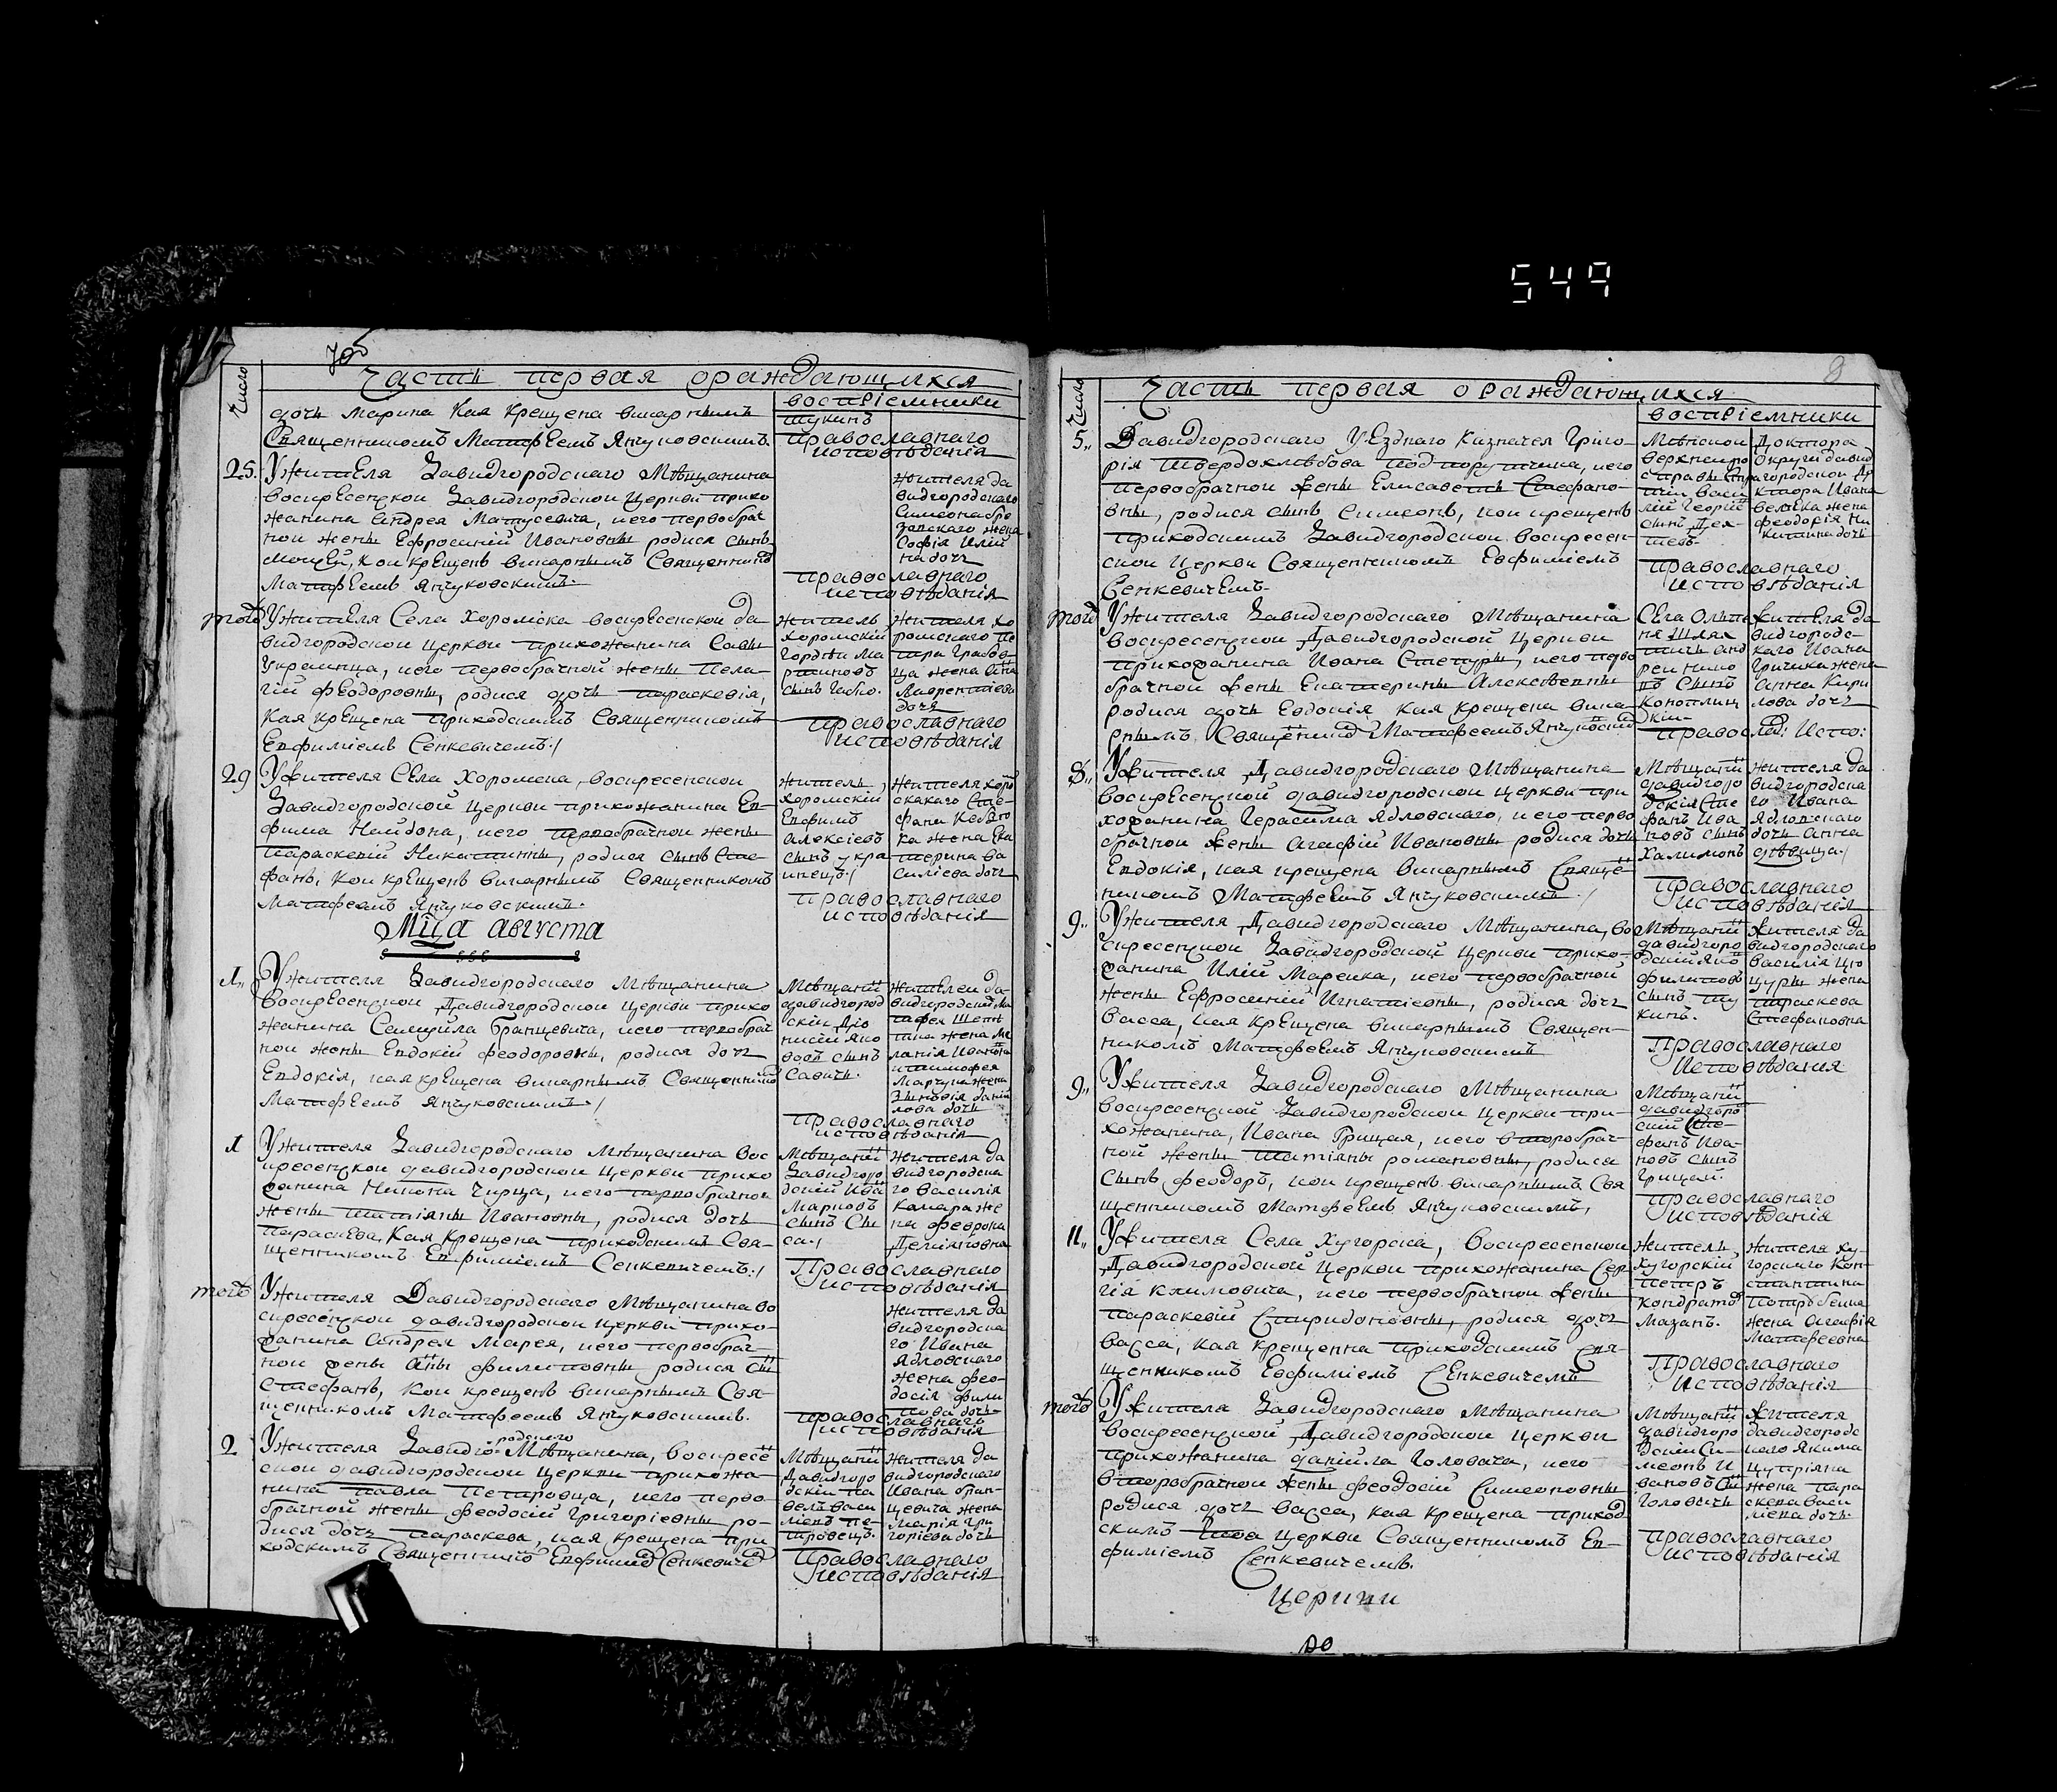 549
Число
Часть первая ораждающихся
воспріемники
дочь Марина Кая крещена викарнымъ
Священникомъ Матфеемъ Янчуковскимъ
шукинъ
православнаго
исповѣданія
25. У жителя Давидгородскаго Мѣщанина
воскресенской Давидгородской церкви прихо
жанина Андрея Матусевича, и его первобрач
ной жены Ефросиніи Ивановны родися сынъ
Моисей, кои крещенъ викарнымъ Священнико
Матфеемъ Янчуковскимъ.
жителя да
видгородскаго
Симеона
жена
Софія Иліи
на дочь
православнаго
исповѣданія
того У жителя Села Хоромска воскресенской да
видгородской церкви прихожанина Савы
Украинца, и его первобрачной жены Пела
гіи феодоровны, родися дочь параскевія,
кая крещена приходскимъ Священникомъ
Евфиміемъ Сенкевичемъ:/
житель
хоромскій
Гордѣи Ма
ртиновъ
сынъ
жителя хо
ромскаго Пе
тра
ца жена Анна
Лаврентиева
дочь
православнаго
исповѣданія
29 У жителя Села Хоромска, воскресенской
Давидгородской церкви прихожанина Ев-
фима Найдона, и его первобрачной жены
параскевіи Никитины, родися сынъ Сте-
фанъ, кои крещенъ викарнымъ Священникомъ
Матфеемъ Янчуковскимъ.
житель
хоромскій
Евфимъ
Алексіевъ
сынъ укра
инецъ:/
жителя хоро
скакаго Сте-
фана
ка жена Ека
терина Ва
силіева дочь
православнаго
исповѣданія
Мца августа
1. У жителя Давидгородскаго Мѣщанина
воскресенской Давидгородской церкви прихо
жанина Самуйла Бранцевича, и его первобрач
ной жены Евдокіи феодоровны, родися дочь
Евдокія, кая крещена викарнымъ Священнико
Матфеемъ Янчуковскимъ:/
Мѣщани
давидгород
скіи Діо
нисіи Яко
вовъ сынъ
Савичъ.
жителей да
видгородски Ма
тфея
жена Ме
ланія Иванова
и тимофея
Марчука жена
Зиновія Даніи
лова дочь
православнаго
исповѣданія
1 У жителя Давидгородскаго Мѣщанина вос
кресенской давидгородской церкви прихо
жанина Никона Чирца, и его первобрачной
жены татіяны Ивановны, родися дочь
параскева, Кая крещена приходскимъ Свя-
щенникомъ Евфиміемъ Сенкевичемъ:/
Мѣщани
Давидгоро
дскій Ива
Марковъ
сынъ Сы
са:/
жителя да
видгородска
го василія
комара же
на феврона
Деміяновна
Православнаго
исповѣданія
того У жителя Давидгородскаго Мѣщанина во
скресенской давидгородской церкви прихо-
жанина Андрея Марея, и его первобрач-
ной жены Анны филиповны родися сы
Стефанъ, кои крещенъ викарнымъ Свя-
щенникомъ Матфеемъ Янчуковскимъ.
жителя да
видгородска
го Ивана
Ядловскаго
жена фео-
досія фили
пова дочь
православнаго
исповѣданія
2 У жителя Давидго-родскаго Мѣщанина, воскресе
ской давидгородской церкви прихожа-
нина павла Петровца, и его перво-
брачной жены феодосіи Григоріевны ро-
дися дочь параскева, кая крещена при
ходскимъ Священнико Евфиміе Сенкевиче
Мѣщани
Давидгоро
дскіи Па
велъ Васи
ліевъ Пе-
тровецъ.
жителя да
видгородскаго
Ивана бран-
цевича жена
Марія Гри
горіева дочь
Православнаго
исповѣданія
8
Число
Часть первая ораждающихся
воспріемники
5. Давидгородскаго Уѣзднаго Казначея Григо-
рія твердохлѣбова подпорутчика, и его
первобрачной жены Елисаветы Стефано-
вны, родися сынъ Симеонъ, кои крещенъ
приходскимъ Давидгородской воскресен-
ской церкви Священникомъ Евфиміемъ
Сенкевичемъ.
Минской
верхней
справы
Васи
лій Георгі
сынъ
Доктора
Округи давид
городской До
ктора Ивана
жена
феодосія Ни
китина дочь
православнаго
исповѣданія
того У жителя Давидгородскаго Мѣщанина
воскресенской Давидгородской церкви
прихожанина Ивана Стетуры, и его перво
брачной жены Екатерины Алексѣевны
родися дочь Евдокія кая крещена вика
рнымъ Священнико Матфеемъ Янчуковски
Села Ольпе
ня Шлях
тичъ Анд
рей Нико
въ Сынъ
Коноплиц
кіи
жителя да
видгородс-
каго Ивана
Гричика жена
Анна Кири
лова дочь
Православ: Испо:
8. У жителя Давидгородскаго Мѣщанина
воскресенской давидгородской церкви при
хожанина Герасима Ядловскаго, и его перво
брачной жены Агафіи Ивановны родися дочь
Евдокія, кая крещена викарнымъ Свяще
нникомъ Матфеемъ Янчуковскимъ:/
Мѣщани
давидгоро
дскія Сте
фанъ Ива
новъ сынъ
Халимонъ
жителя да
видгородска
го Ивана
Ядловскаго
дочь Анна
дѣвица:/
православнаго
исповѣданія
9. У жителя Давидгородскаго Мѣщанина, во
скресенской Давидгородской церкви прихо-
жанина Иліи Маренка, и его первобрачной
жены Ефросиніи Игнатіевны, родися дочь
Васса, кая крещена викарнымъ Священ-
никомъ Матфеемъ Янчуковскимъ
Мѣщани
давидгоро
дскій Яко
филиповъ
сынъ шу
кинъ.
жителя да
видгородскаго
Василія Цю
цуры жена
параскева
Стефановна
Православнаго
Исповѣданія
9. У жителя Давидгородскаго Мѣщанина
воскресенской Давидгородской церкви при-
хожанина, Ивана Грицая, и его второбрач-
ной жены татіяны романовны, родися
сынъ феодоръ, кои крещенъ викарнымъ Свя
щенникомъ Матфеемъ Янчуковскимъ,
Мѣщани
давидгоро
скій Сте-
фанъ Ива-
новъ сынъ
Грицай.
православнаго
исповѣданія
11. У жителя Села Хугорска, Воскресенской
Давидгородской церкви прихожанина Сер
гія климовича, и его первобрачной жены
параскевіи Спиридоновны, родися дочь
васса, кая крещенна приходскимъ Свя-
щенникомъ Евфиміемъ Сенкевичемъ
житель
хугорскій
Петръ
Кондрато
Мазанъ.
жителя ху-
горскаго Кон-
стантина
жена Агафія
Матфеевна
Православнаго
Исповѣданія
того У жителя Давидгородскаго Мѣщанина
воскресенской Давидгородской церкви
прихожанина даніила Головача, и его
второбрачной жены феодосіи Симеоновны
родися дочь васса, кая крещена приход
скимъ церкви Священникомъ Ев-
фиміемъ Сенкевичемъ.
Мѣщани
давидгоро
дскіи Си-
меонъ И
вановъ Сы
Головачъ
жителя
давидгородс
каго Якима
Цупріяна
жена пара
скева Васи
лева дочь.
православнаго
исповѣданія
церкви